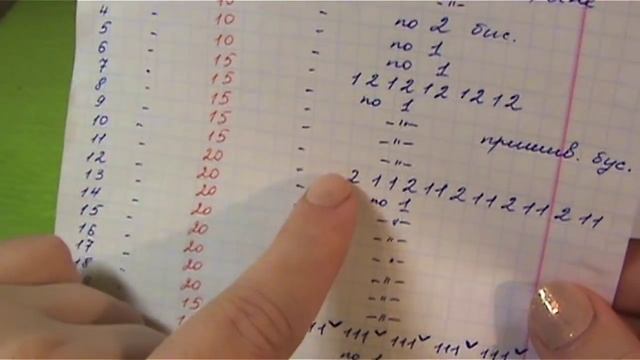 -"-
4 - 10 - по 2 бус.
5 - 10 - по 1
6 - 15 - по 1
7 - 15 - 12 12 12 12 12
8 - 15 - по 1
9 - 15 - -"-
10 - 15 - -"- пришив. бус.
11 - 20 - -"-
12 - 20 - 2 11 2 11 2 11 2 11 2 11
13 - 20 - по 1
14 - 20 -"-
15 - 20 -"-
16 - 20 -"-
17 - 20 -"-
18 - 20 -"-
15 -"-
111✓ 111✓ 111✓ 111✓
по 1